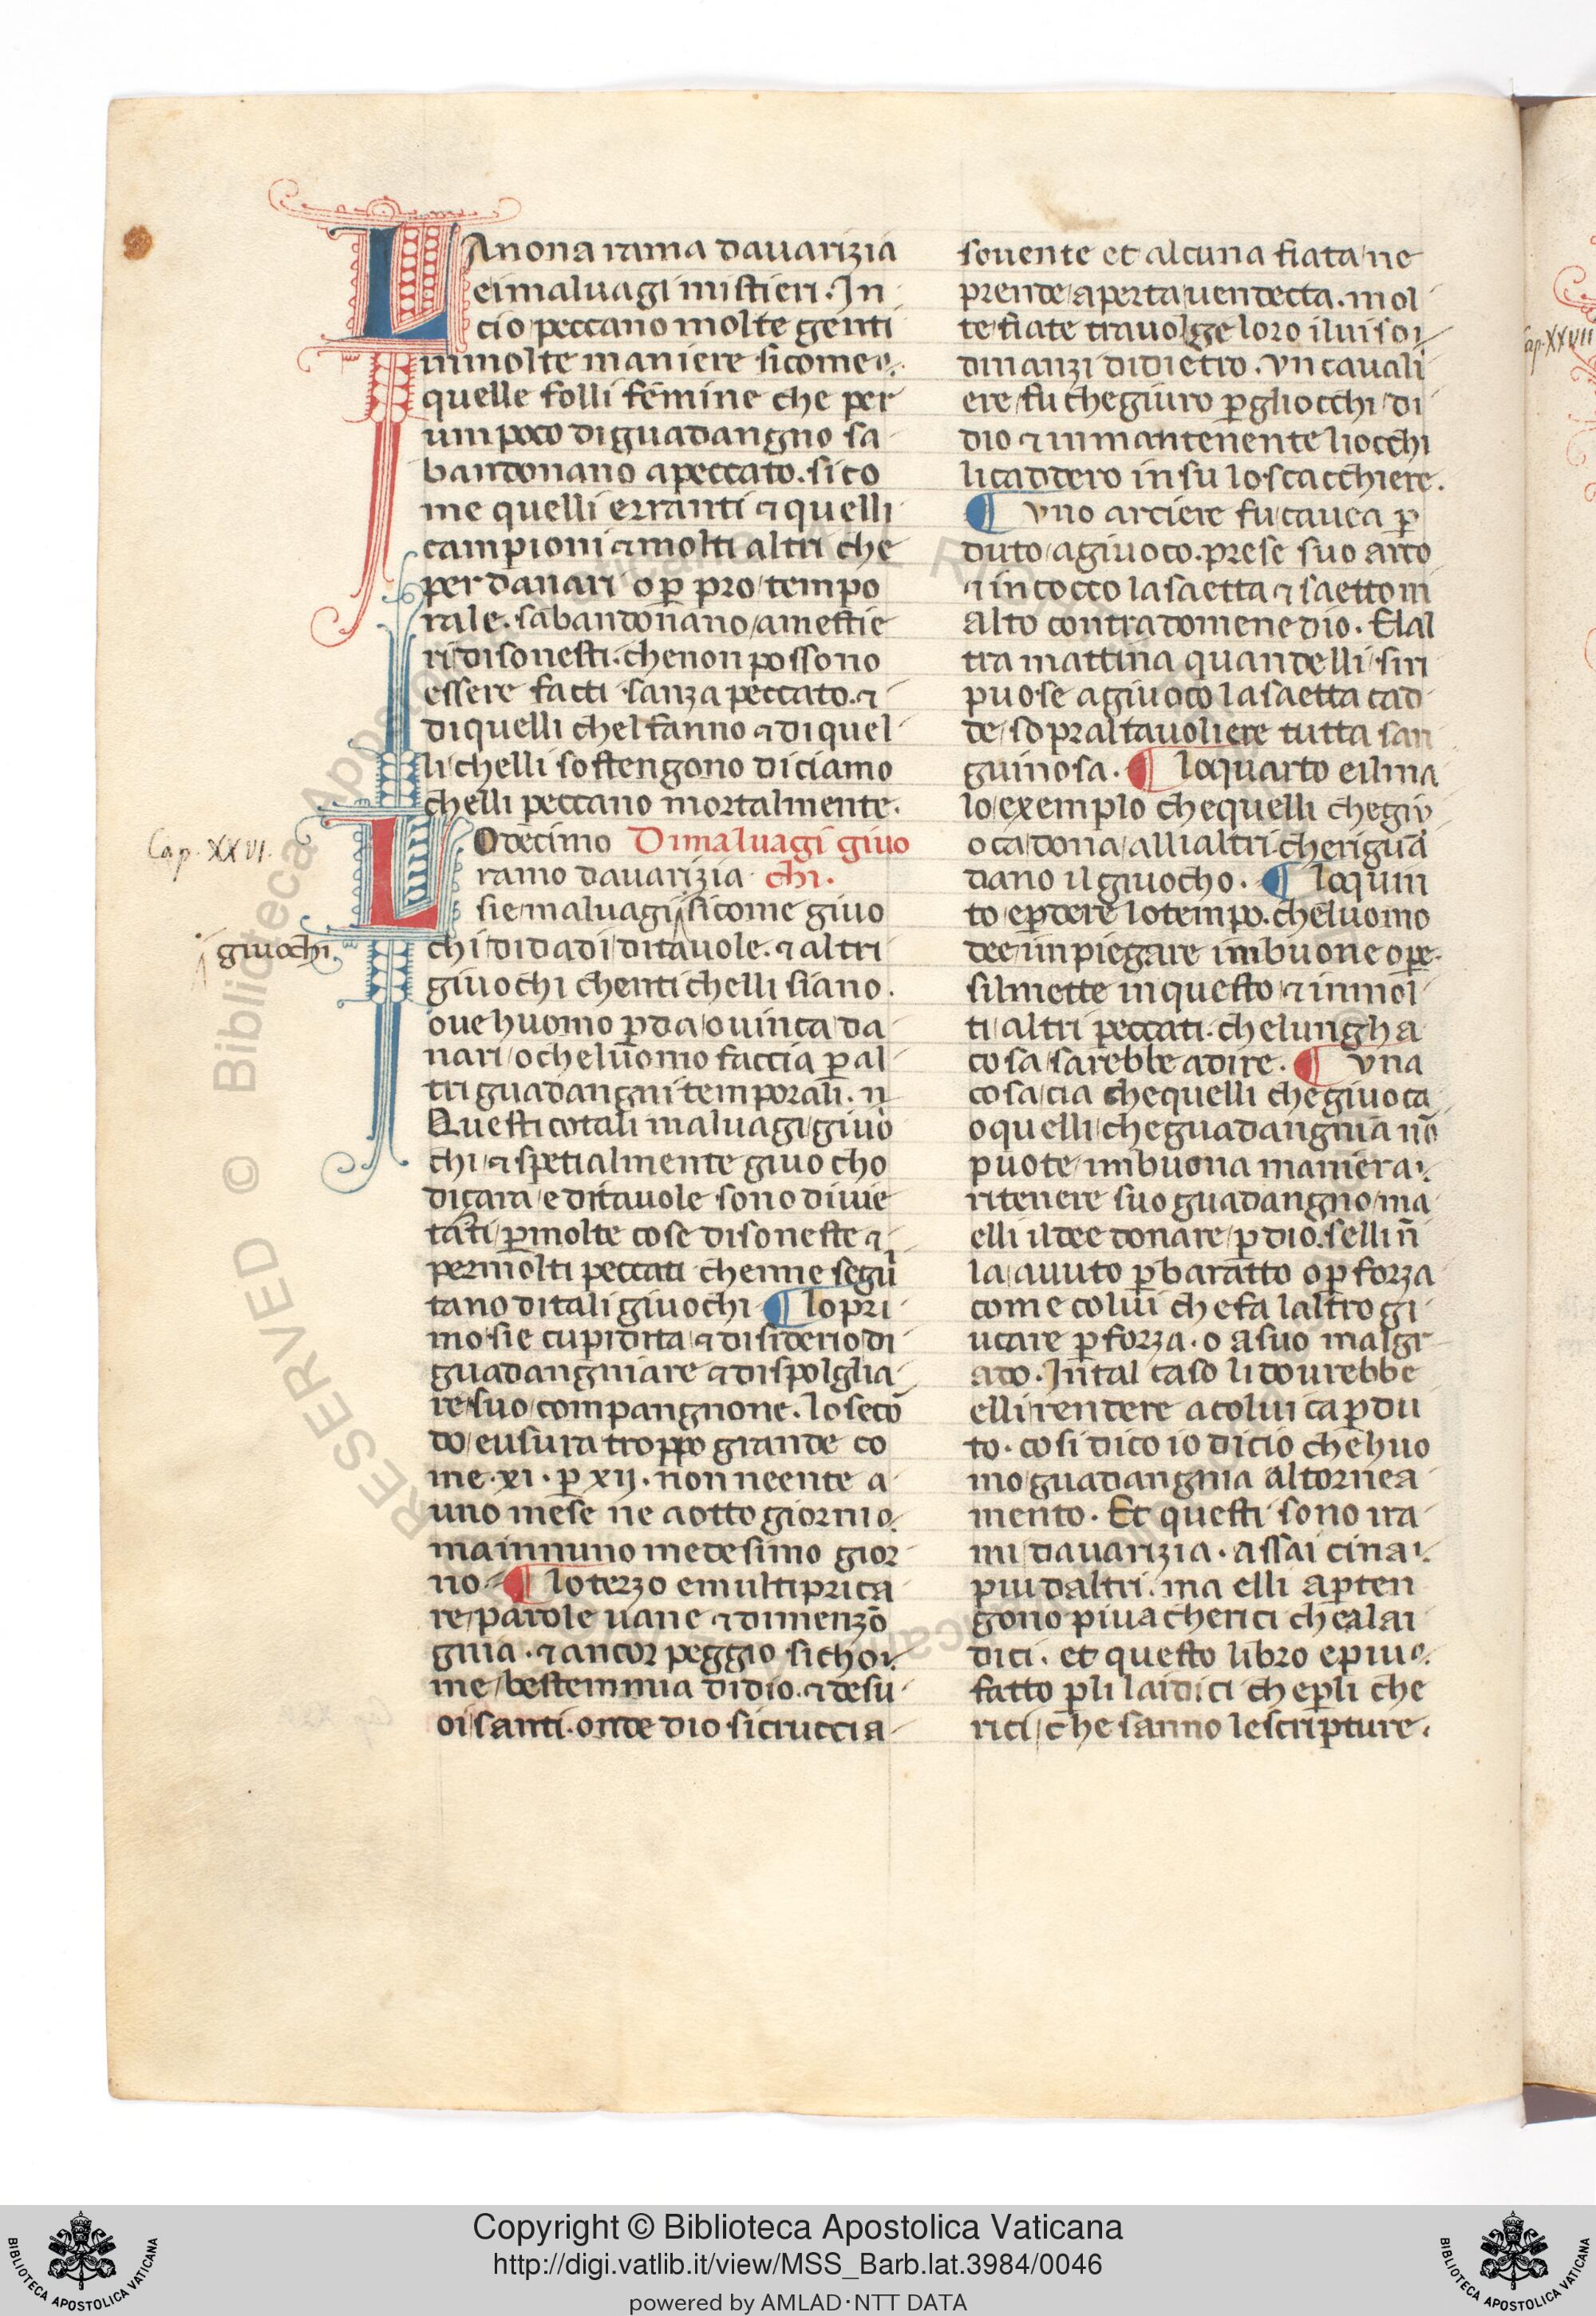 LAnona rama dauarizia
eimaluagi mistieri. In
cio peccano molte genti
inmolte maniere sicome
quelle folli femine che per
umpoco diguadangno sa
bandonano apeccato. sico
me quelli erranti ⁊ quelli
campioni ⁊molti altri che
per danari op̲ pro tempo
rale. sabandonano amestie
ri disonesti. chenon possono
essere facti sanza peccato. ⁊
diquelli chel fanno ⁊ diquel
li chelli sostengono diciamo
chelli peccano mortalmente.
Cap. XXVI.
LOdecimo Dimaluagi giuo
ramo dauarizia chi.
sie maluagi sicome giuo
giuochi
chi didadi ditauole. ⁊ altri
giuochi chenti chelli siano.
oue huomo p̲da ouinca da
nari o cheluomo faccia p̲ al
tri guadangni temporali. n
Questi cotali maluagi giuo
chi ⁊ spetialmente giuocho
diçara e ditauole sono diuie
tati p̲molte cose disoneste ⁊
permolti peccati chenne segui
tano ditali giuochi ¶ lopri
mo sie cupidita ⁊ disiderio di
guadangniare ⁊ dispolglia
re suo compangnone. lo secō
do eusura troppo grande co
me .xi. p̲ xij. non neente a
uno mese ne aotto giorni o
mainnuno medesimo gior
no ¶ loterzo emultiprica
re parole uane ⁊ dimenzō
gnia. ⁊ ancor peggio sicho
me bestemmia didio. ⁊ desu
oi santi. onde dio sicruccia
souente et alcuna fiata ne
prende aperta uendecta. mol
te fiate trauolge loro iluiso
dinanzi didietro. vn cauali
ere fu chegiuro p̲gliocchi di
dio ⁊ inmantenente liocchi
licaddero in su loscacchiere.
¶ vno arciere fu cauea p̲
duto agiuoco. prese suo arco
⁊ incocco lasaetta ⁊ saetto in
alto contra domenedio. Elal
tra mattina quandelli siri
puose agiuoco lasaetta cad
de sopraltauoliere tutta san
guinosa. ¶ loquarto eilma
lo exemplo chequelli chegiu
oca dona alli altri cherigua
dano il giuocho. ¶ loquin
to ep̲dere lotempo. cheluomo
dee impiegare imbuone op̲e.
silmette inquesto ⁊ inmol
ti altri peccati. chelungha
cosa sarebbe adire. ¶ vna
cosa cia chequelli chegiuoca
oquelli cheguadangnia nō
puote imbuona maniera
ritenere suo guadangno ma
elli ildee donare p̲ dio. selli n̄
la auuto p̲ baratto op̲ forza
come colui chefa laltro gi
ucare p̲ forza. o asuo malgr
ado. Intal caso li dourebbe
elli rendere acolui cap̲du
to. cosi dico io dicio che huo
mo guadangnia altornea
mento. Et questi sono ira
mi dauarizia. assai cina
piu daltri. ma elli ap̲ten
gono piu a cherici che alai
dici. et questo libro e piu
fatto p̲li laidici che p̲li che
rici che sanno lescripture.
Cap. XXVII
Copyright © Biblioteca Apostolica Vaticana
http://digi.vatlib.it/view/MSS_Barb.lat.3984/0046
powered by AMLAD·NTT DATA
BIBLIOTECA APOSTOLICA VATICANA
BIBLIOTECA APOSTOLICA VATICANA